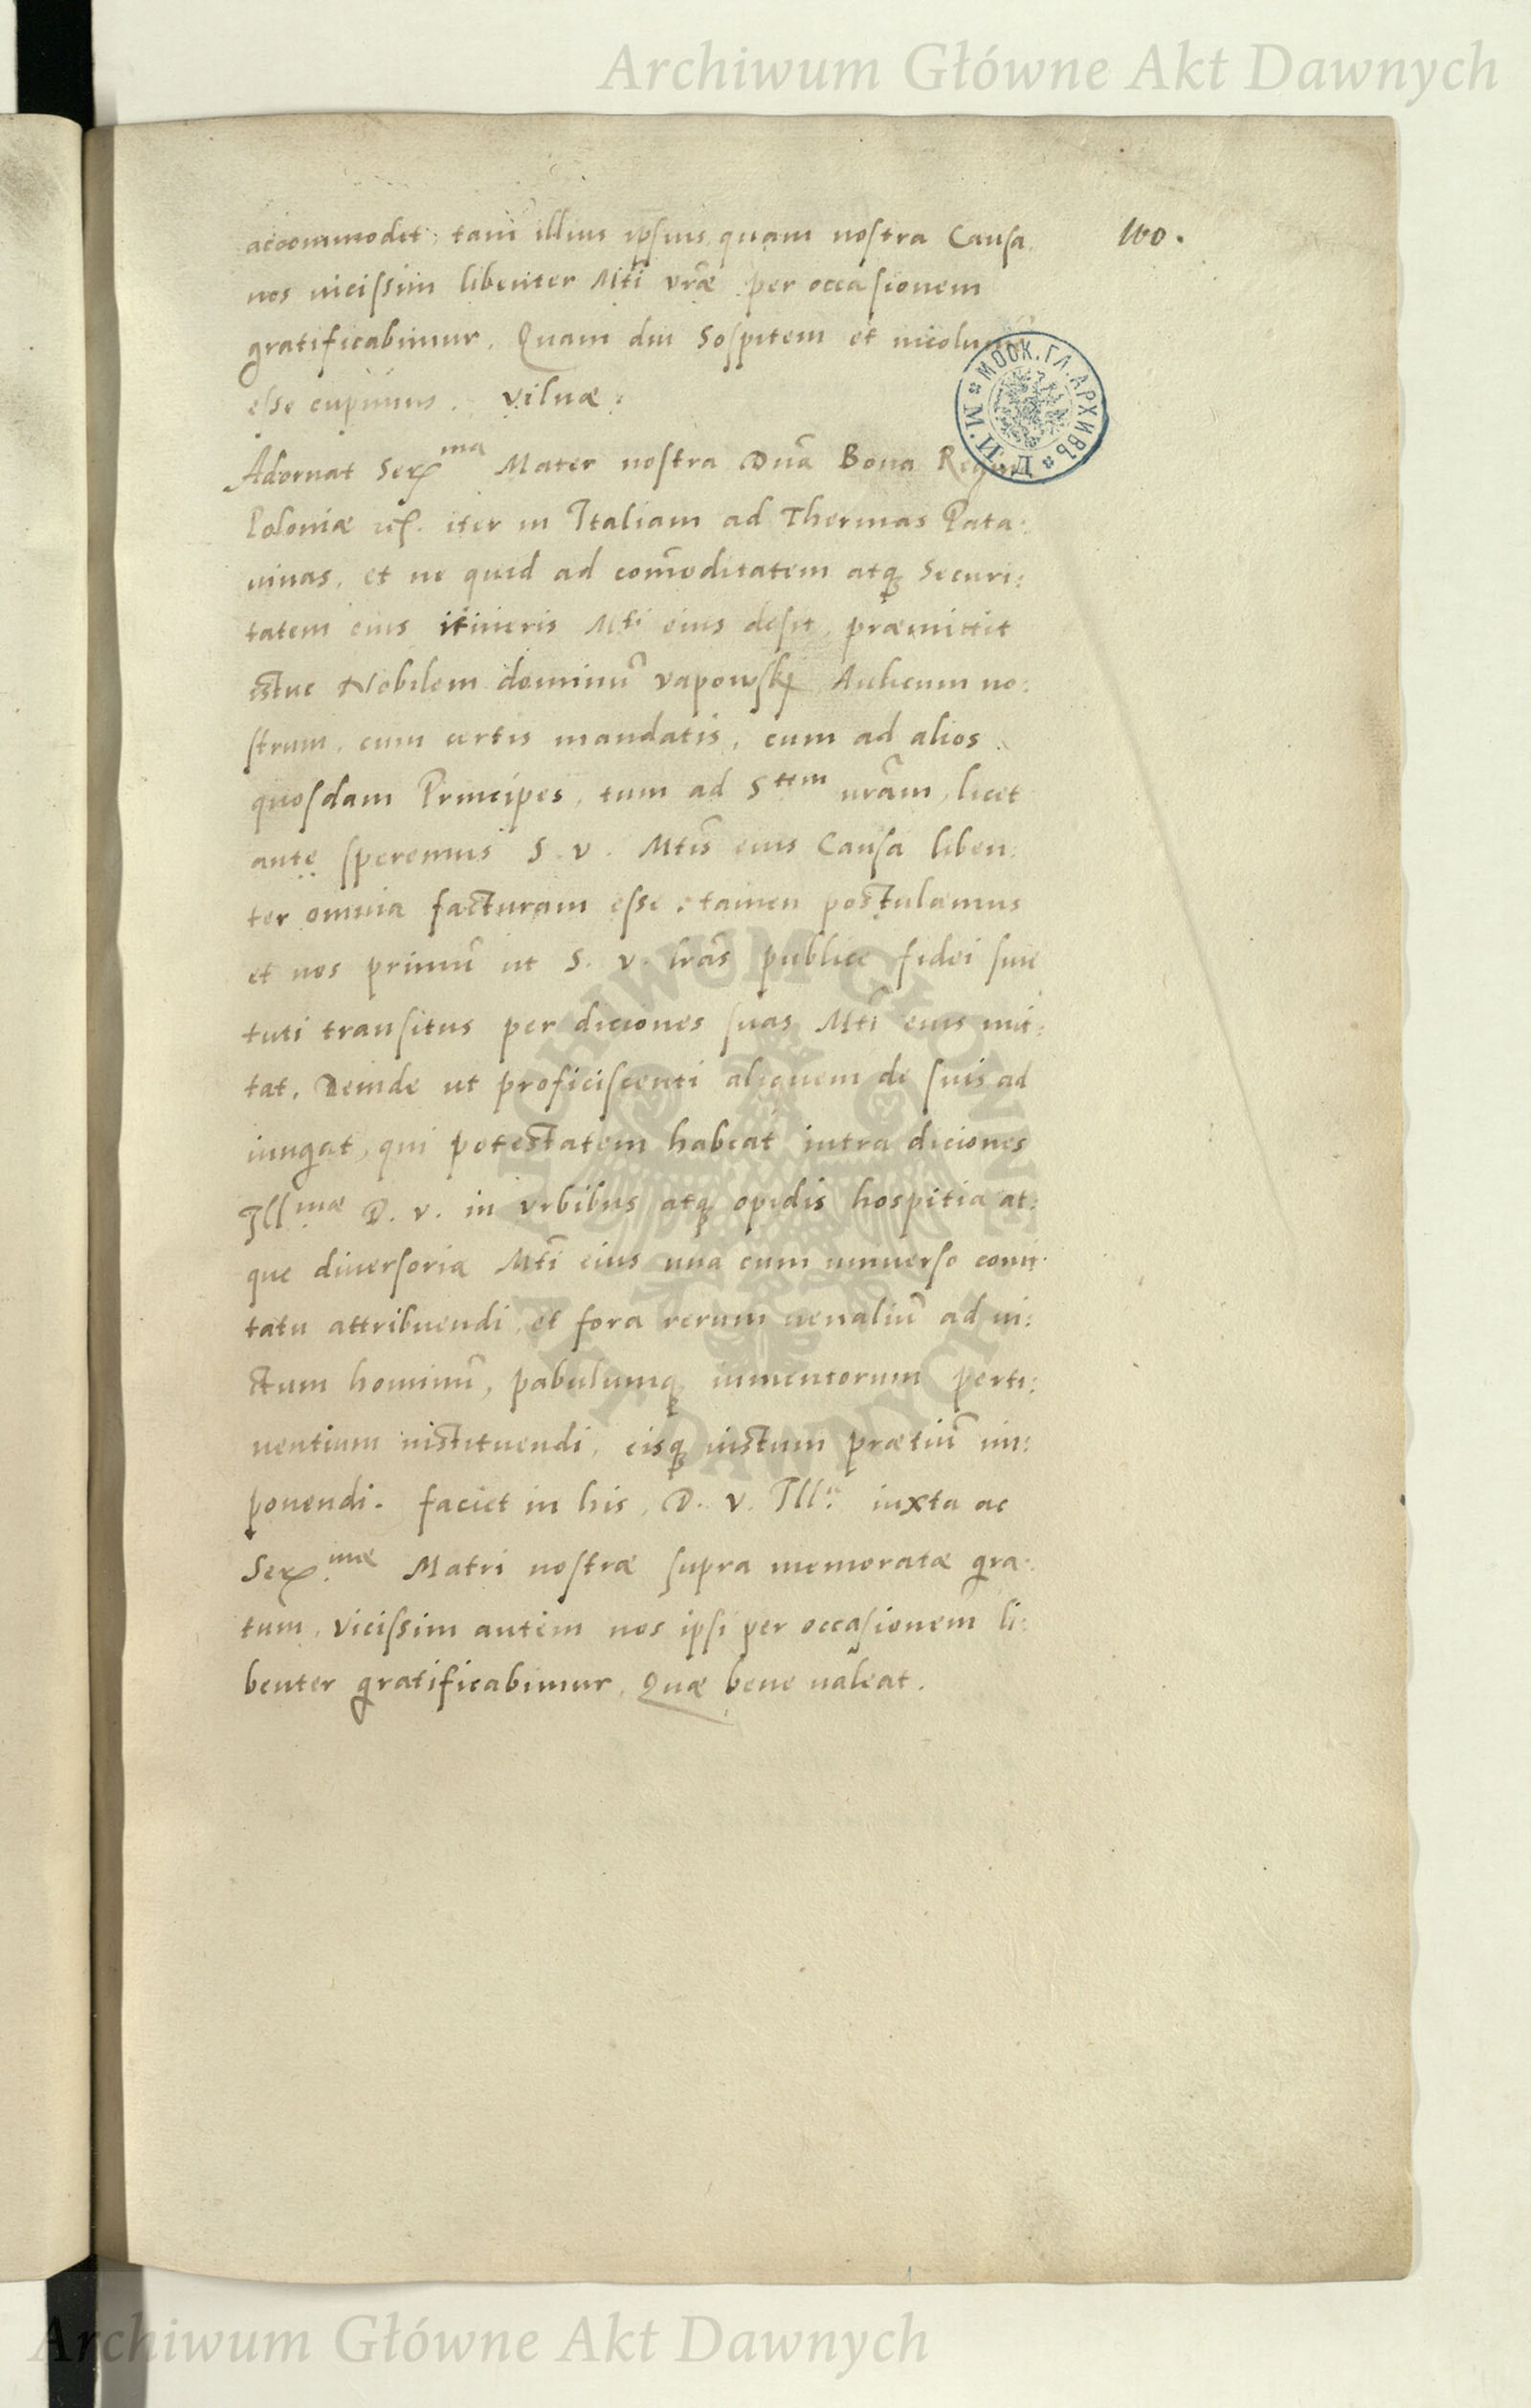 Archiwum Główne Akt Dawnych
100.
accommodet, tam illius ipsius, quam nostra Causa.
nos vicissim libenter Mti vræ per occasionem
gratificabimur. Quam diu Sospitem et incolumem
esse cupimus. Vilnæ:
Adornat Ser^ma Mater nostra Dna Bona Regina
Poloniæ etc. iter in Italiam ad Thermas Pata:
uinas, et ne quid ad comoditatem atq Securi:
tatem eius itineris Mti eius desit, præmittit
istuc Nobilem dominu vapowskj Aulicum no:
strum, cum certis mandatis, cum ad alios
quosdam Principes, tum ad S^ttm uram, licet
ante speremus S. v. Mtis eius Causa liben:
ter omnia facturam esse, tamen postulamus
et nos primu ut S. v. lras publice fidei sue
tuti transitus per diciones suas Mti eius mit:
tat, Deinde ut proficiscenti aliquem de suis ad
iungat, qui potestatem habeat intra diciones
Ill^mæ D. v. in vrbibus atq opidis hospitia at:
que diuersoria Mti eius una cum uniuerso comi:
tatu attribuendi, et fora rerum uenaliu ad ui:
ctum hominu, pabulumq iumentorum perti:
nentium instituendi, eisq iustum prætiu im:
ponendi. faciet in his, D. v. Ill: iuxta ac
Ser^mæ Matri nostræ supra memoratæ gra:
tum, vicissim autem nos ipsi per occasionem li:
benter gratificabimur. Quæ bene ualeat.
МОСК. ГЛ. АРХИВЪ
М. И. Д.
ARCHIWUM GŁÓWNE
AKT DAWNYCH
Archiwum Główne Akt Dawnych